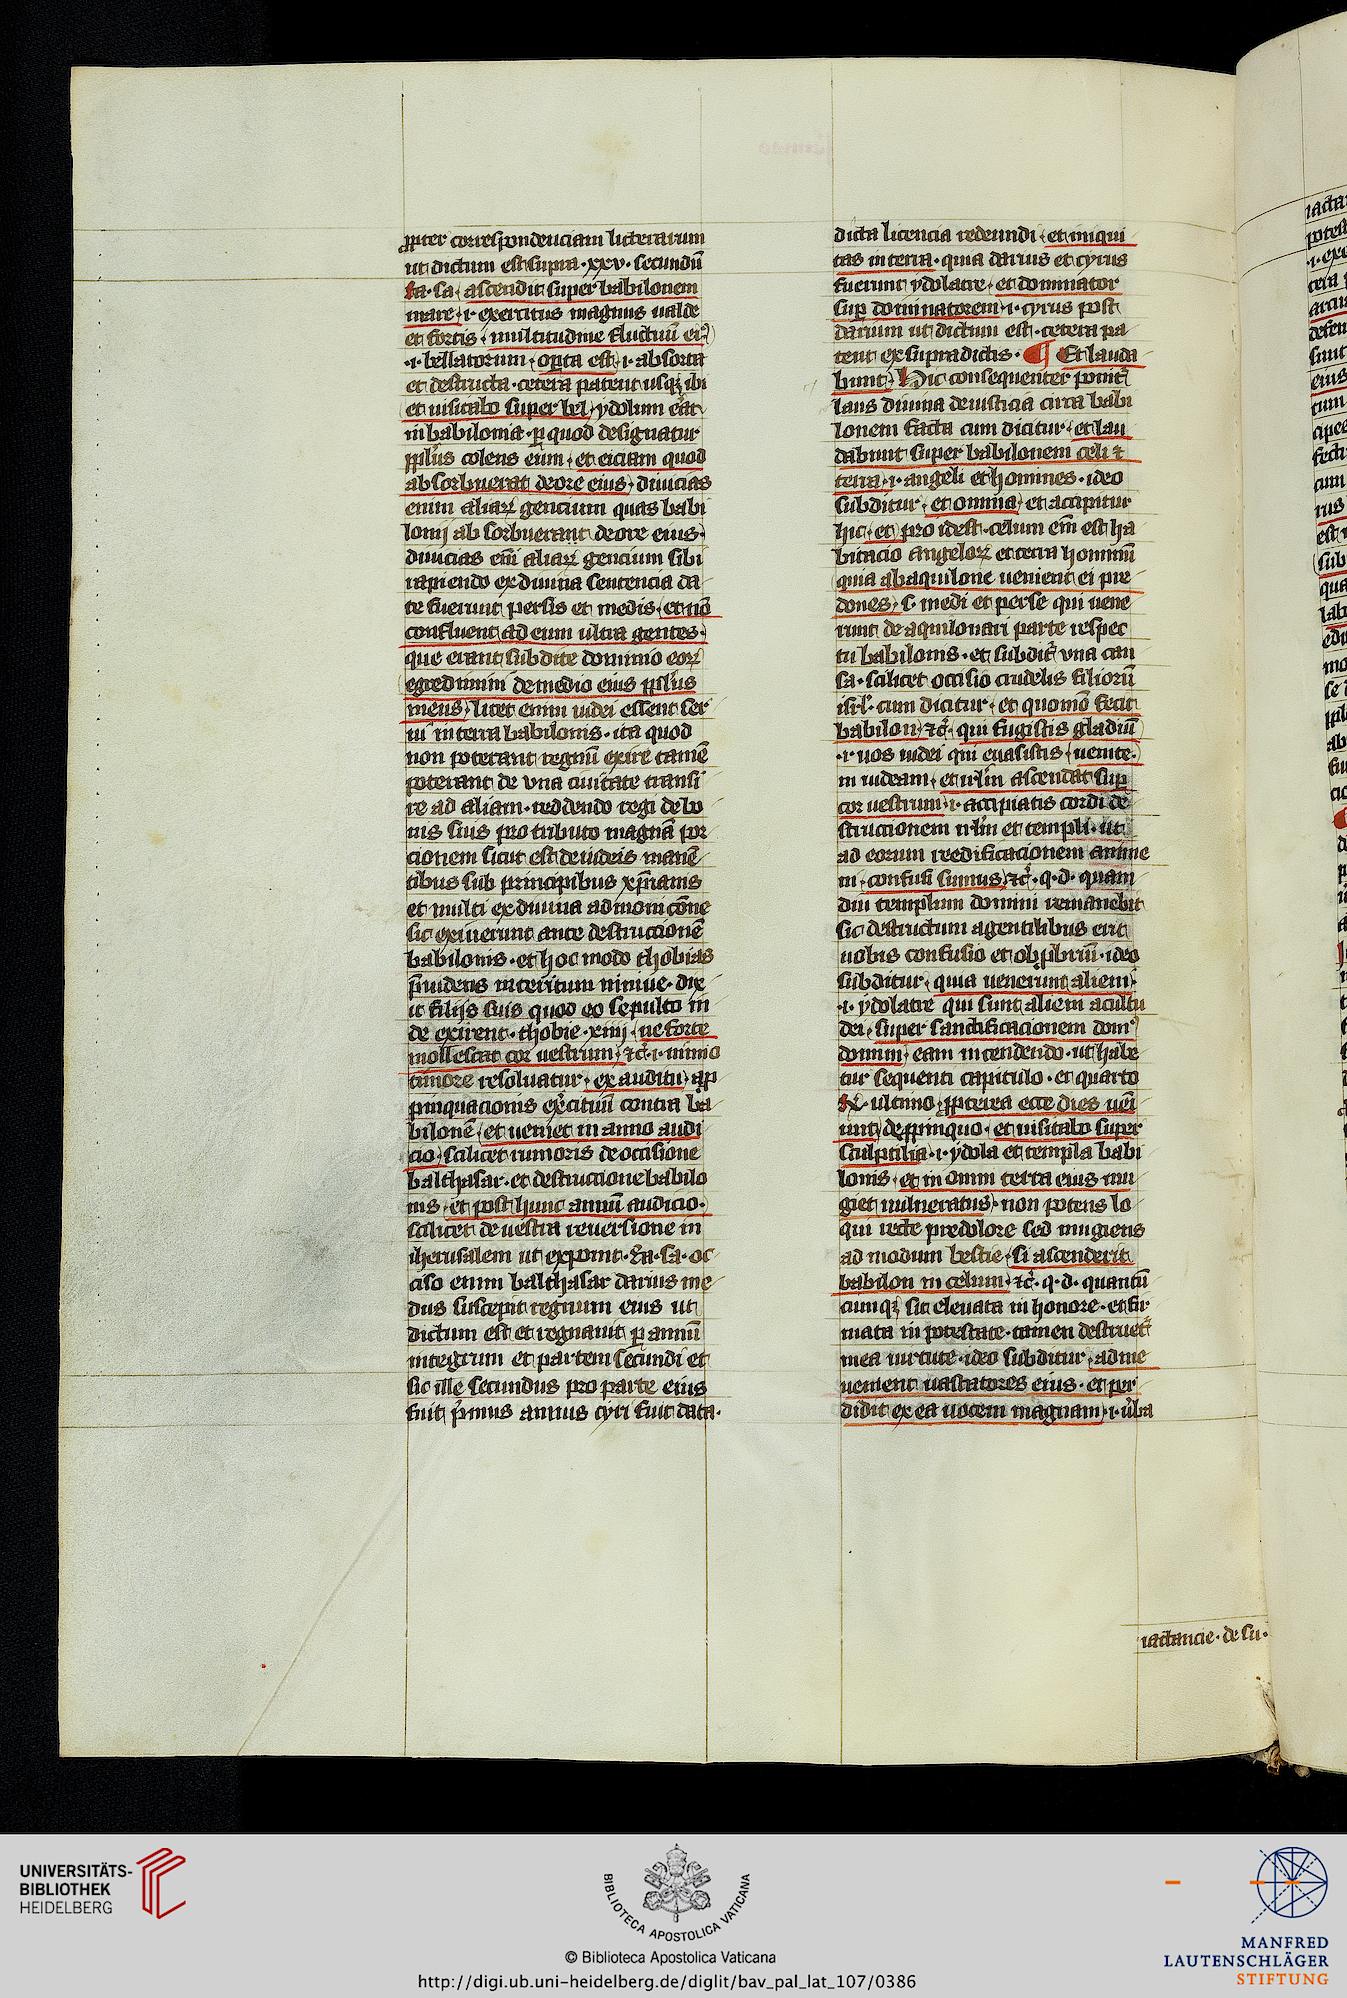 ꝓpter correspondenciam litterarum
ut dictum est supra · xxv · secundū
ra · sa · ascendit super babilonem
mare · i · exercitus magnus ualde
et fortis · multitudine fluctuū eiꝰ
· i · bellatorum · opta est · i · absorta
et destructa · cetera patent usqꝫ ibi
et uisitabo super bel · ydolum erat
in babilonia · ꝑ quod designatur
ppl̄us colens eum · et eiciam quod
absorbuerat de ore eius · diuicias
enim aliaꝝ gentium quas babi
lonij absorbuerant de ore eius ·
diuicias em̄ aliaꝝ gencium sibi
rapiendo ex diuina sentencia da
te fuerunt persis et medis · et nō
confluent ad eum ultra gentes ·
que erant subdite dominio eoꝝ
egredimini de medio eius ppl̄us
meus · licet enim iudei essent ser
ui in terra babilonis · ita quod
non poterant regnū exire tamē
poterant de vna ciuitate transi
re ad aliam · reddendo regi de bo
nis suis pro tributo magnā por
cionem sicut est de iudeis manē
tibus sub principibus xp̄ianis
et multi ex diuina admonicōne
sic exiuerunt ante destructionē
babilonis · et hoc modo thobias
p̄uidens interitum niniue · dix
it filijs suis quod eo sepulto in
de exirent · thobie · xiiij · ne forte
mollescat cor uestrum · ⁊c̄ · i · nimio
timore resoluatur · ex auditu · aꝓ
pinquacionis exercituū contra ba
bilonē · et ueniet in anno audi
cio · scilicet rumoris de occisione
balthasar · et destructione babilo
nis · et post hunc annū audicio ·
scilicet de uestra reuersione in
iherusalem ut exponit · ra · sa · oc
ciso enim balthasar darius me
dus suscepit regnum eius ut
dictum est et regnauit ꝑ annū
integrum et partem secundi et
sic ille secundus pro parte eius
fuit p̄mus annus cyri fuit data ·
dicta licencia redeundi · et iniqui
tas in terra · quia darius et cyrus
fuerunt ydolatre · et dominator
suꝑ dominatorem · i · cyrus post
darium ut dictum est · cetera pa
tent ex supradictis · ¶ Et lauda
bunt · Hic consequenter ponit᷑
laus diuina de iusticia circa babi
lonem facta cum dicitur · et lau
dabunt super babilonem celi ⁊
terra · i · angeli et homines · ideo
subditur · et omnia · et accipitur
hic · et · pro idest · celum em̄ est ha
bitacio angeloꝝ et terra hominū
quia ab aquilone uenient ei pre
dones · s · medi et perse qui uene
runt de aquilonari parte respec
tu babilonis · et subdit᷑ vna cau
sa · scilicet occisio crudelis filiorū
isrl̄ · cum dicitur · et quomō fecit
babilon · ⁊c̄ · qui fugistis gladiū
· i · uos iudei qui euasistis · uenite ·
in iudeam · et irl̄m ascendat suꝑ
cor uestrum · i · accipiatis cordi de
structionem irl̄m et templi · ut
ad eorum reedificacionem anime
ni · confusi sumus · ⁊c̄ · q · d · quam
diu templum domini remanebit
sic destructum a gentilibus erit
uobis confusio et obꝓbriū · ideo
subditur · quia uenerunt alieni ·
· i · ydolatre qui sunt alieni a cultu
dei · super sanctificacionem domꝰ
domini · eam incendendo · ut habe
tur sequenti capitulo · et quarto
R · ultimo · ꝓpterea ecce dies ueni
unt · de ꝓpinquo · et uisitabo super
sculptilia · i · ydola et templa babi
lonis · et in omni terra eius mu
giet uulneratus · non potens lo
qui recte pre dolore sed mugiens
ad modum bestie · si ascenderit
babilon in celum · ⁊c̄ · q · d · quantū
cumqꝫ sic eleuata in honore · et fir
mata in potestate · tamen destruet᷑
mea uirtute · ideo subditur · a d me
uenient uastatores eius · et per
didit ex ea uocem magnam · i · u̾ba
iactancie · de su ·
UNIVERSITÄTS-
BIBLIOTHEK
HEIDELBERG
BIBLIOTECA APOSTOLICA VATICANA
© Biblioteca Apostolica Vaticana
http://digi.ub.uni-heidelberg.de/diglit/bav_pal_lat_107/0386
MANFRED
LAUTENSCHLÄGER
STIFTUNG